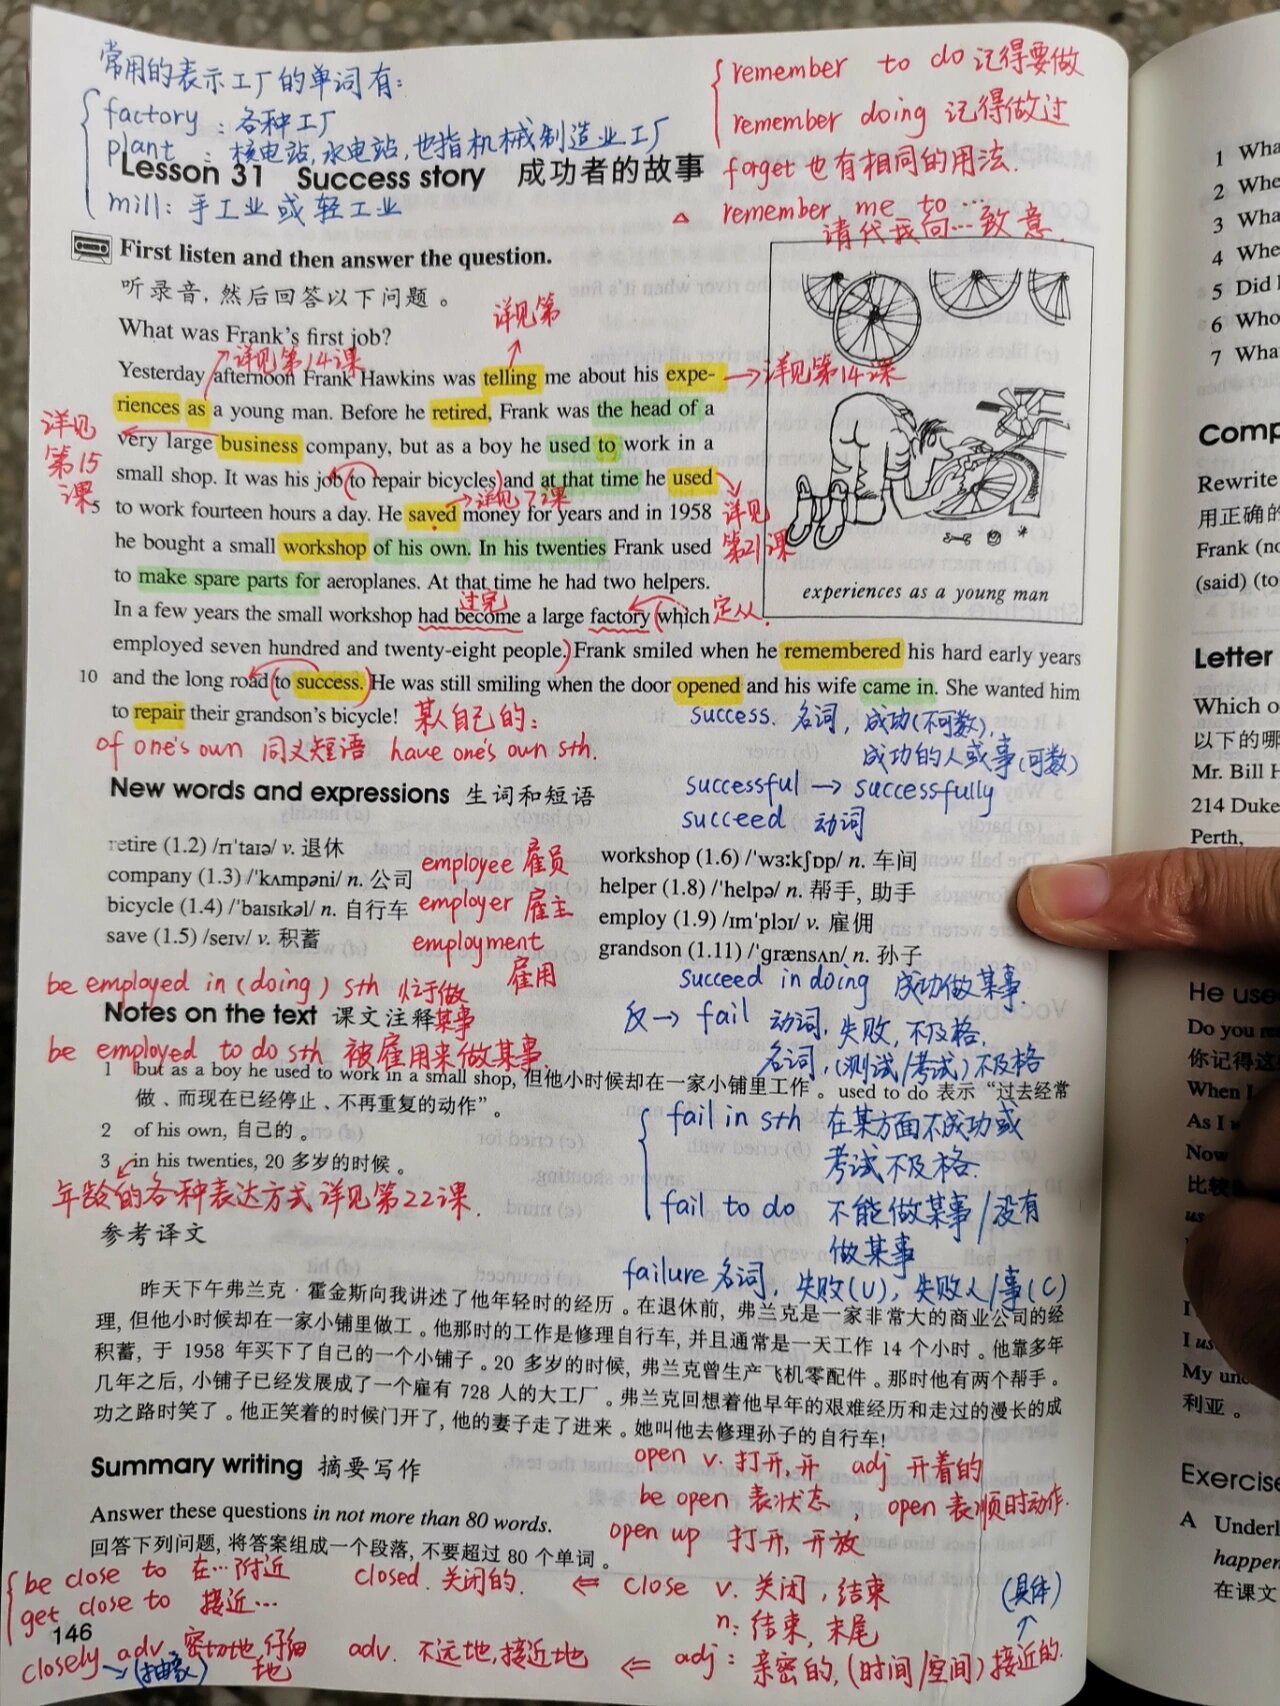 常用的表示工厂的单词有:
factory : 各种工厂
plant : 核电站,水电站,也指机械制造业工厂
Lesson 31 Success story 成功者的故事
mill: 手工业或轻工业
remember to do 记得要做
remember doing 记得做过
forget 也有相同的用法.
△ remember me to …
请代我向…致意.
First listen and then answer the question.
听录音,然后回答以下问题。
What was Frank's first job?
详见第14课
详见第
Yesterday afternoon Frank Hawkins was telling me about his expe-
→详见第14课
riences as a young man. Before he retired, Frank was the head of a
详见第15课
very large business company, but as a boy he used to work in a
small shop. It was his job (to repair bicycles) and at that time he used
详见72课
详见第21课
5 to work fourteen hours a day. He saved money for years and in 1958
he bought a small workshop of his own. In his twenties Frank used
to make spare parts for aeroplanes. At that time he had two helpers.
过完
In a few years the small workshop had become a large factory (which 定从.
employed seven hundred and twenty-eight people.) Frank smiled when he remembered his hard early years
10 and the long road (to success.) He was still smiling when the door opened and his wife came in. She wanted him
to repair their grandson's bicycle!
experiences as a young man
某人自己的:
of one's own 同义短语 have one's own sth.
success. 名词, 成功(不可数),
成功的人或事(可数)
successful → successfully
succeed 动词
New words and expressions 生词和短语
retire (1.2) /rɪˈtaɪə/ v. 退休
company (1.3) /ˈkʌmpəni/ n. 公司
bicycle (1.4) /ˈbaɪsɪkəl/ n. 自行车
save (1.5) /seɪv/ v. 积蓄
employee 雇员
employer 雇主
employment
雇用
workshop (1.6) /ˈwɜːkʃɒp/ n. 车间
helper (1.8) /ˈhelpə/ n. 帮手, 助手
employ (1.9) /ɪmˈplɔɪ/ v. 雇佣
grandson (1.11) /ˈɡrænsʌn/ n. 孙子
be employed in (doing) sth 忙于做某事
succeed in doing 成功做某事.
反→ fail 动词, 失败, 不及格.
名词, (测试/考试)不及格
Notes on the text 课文注释
be employed to do sth 被雇用来做某事.
1 but as a boy he used to work in a small shop, 但他小时候却在一家小铺里工作。used to do 表示“过去经常
做、而现在已经停止、不再重复的动作”。
2 of his own, 自己的。
3 in his twenties, 20 多岁的时候。
年龄的各种表达方式详见第22课.
fail in sth 在某方面不成功或
考试不及格.
fail to do 不能做某事/没有
做某事
failure 名词, 失败(U), 失败人/事(C)
参考译文
昨天下午弗兰克·霍金斯向我讲述了他年轻时的经历。在退休前, 弗兰克是一家非常大的商业公司的经
理, 但他小时候却在一家小铺里做工。他那时的工作是修理自行车, 并且通常是一天工作 14 个小时。他靠多年
积蓄, 于 1958 年买下了自己的一个小铺子。20 多岁的时候, 弗兰克曾生产飞机零配件。那时他有两个帮手。
几年之后, 小铺子已经发展成了一个雇有 728 人的大工厂。弗兰克回想着他早年的艰难经历和走过的漫长的成
功之路时笑了。他正笑着的时候门开了, 他的妻子走了进来。她叫他去修理孙子的自行车!
Summary writing 摘要写作
open v. 打开, 开 adj 开着的
be open 表状态, open 表顺时动作.
open up 打开, 开放
Answer these questions in not more than 80 words.
回答下列问题, 将答案组成一个段落, 不要超过 80 个单词。
be close to 在…附近
get close to 接近…
closed. 关闭的. ⇐ close v. 关闭, 结束
n: 结束, 末尾
(具体)
146
closely adv. 密切地, 仔细地
(抽象)
adv. 不远地, 接近地 ⇐ adj: 亲密的, (时间/空间) 接近的.
1 Wha
2 Whe
3 Wha
4 Whe
5 Did
6 Who
7 Wha
Comp
Rewrite
用正确的
Frank (no
(said) (to
Letter
Which o
以下的哪
Mr. Bill H
214 Duke
Perth,
He use
Do you re
你记得这
When I
As I
Now
比较
us
I
I us
My unc
利亚。
Exercise
A Underl
happen
在课文